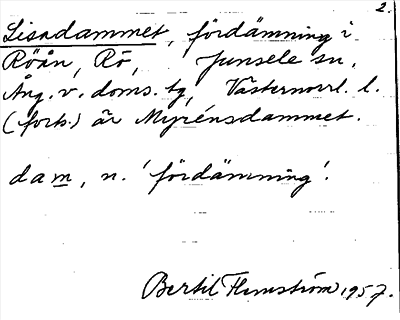 2.
Lisadammet, fördämning i
Röån, Rö, Junsele sn,
Ång. v. doms. tg, Västernorrl. l.
(forts.) är Myrénsdammet.
dam, n. 'fördämning'.
Bertil Flemström 1957.